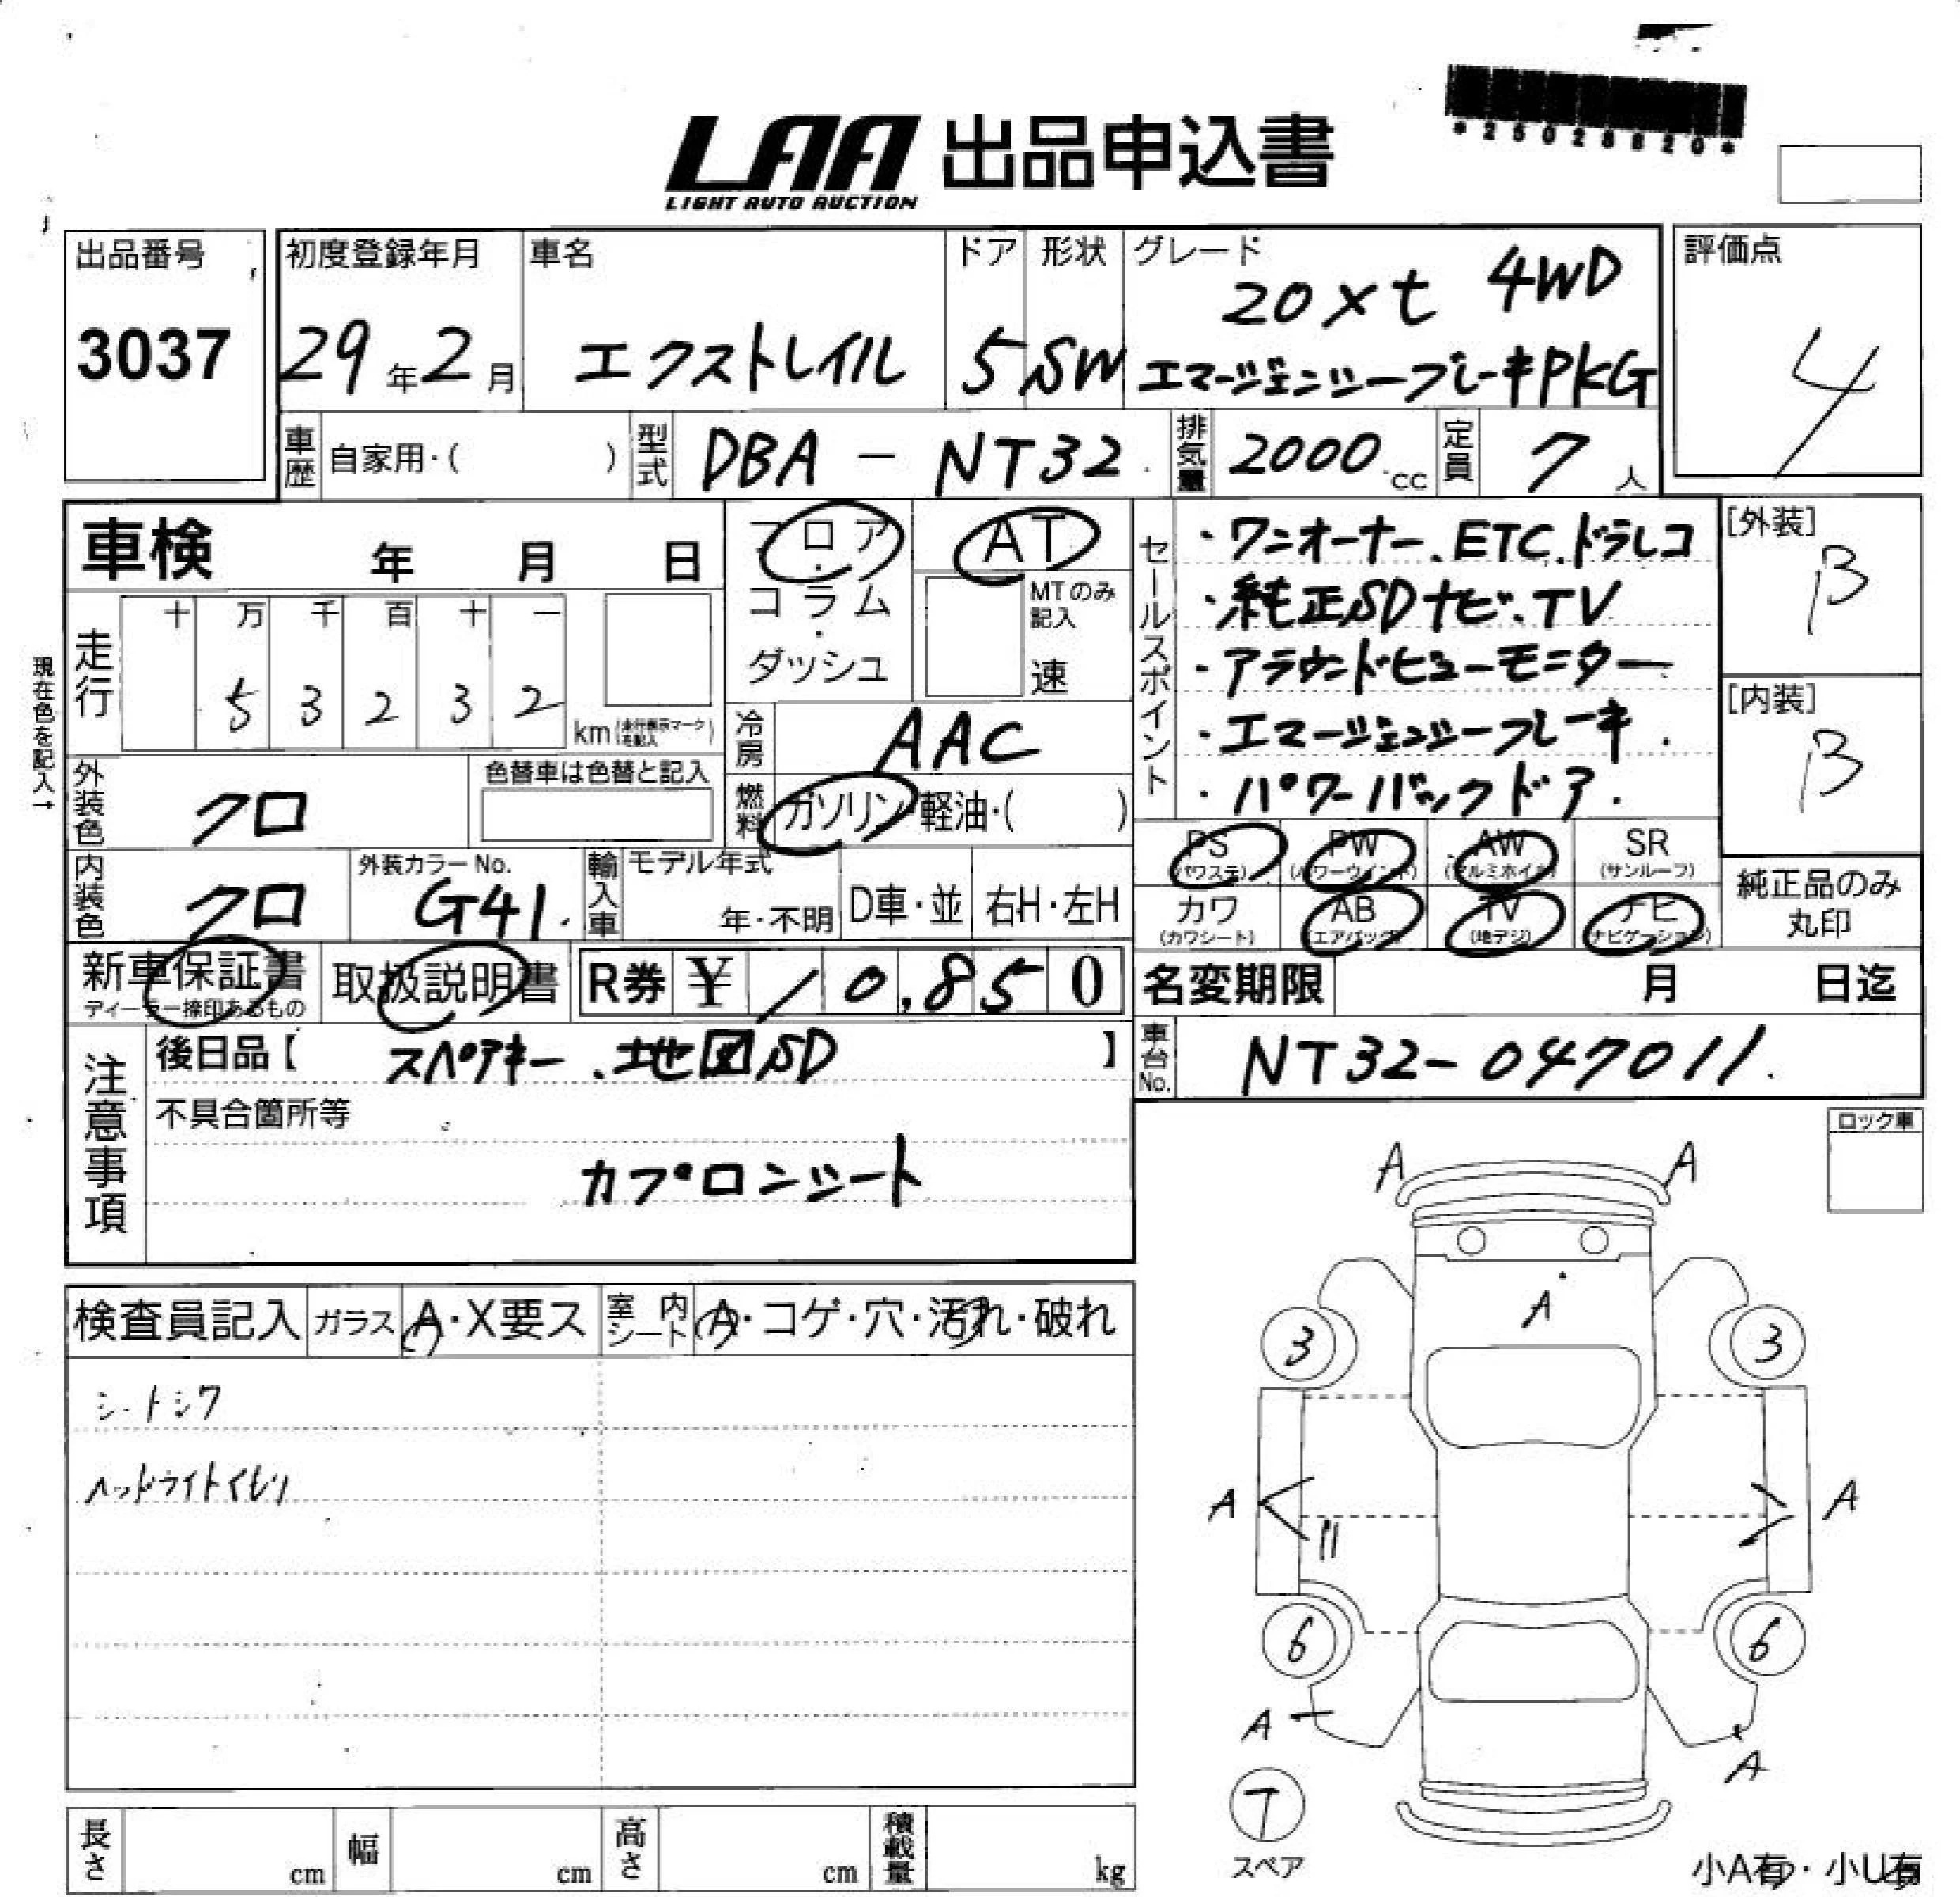 LAA 出品申込書
LIGHT AUTO AUCTION
*25028820*
出品番号
3037
初度登録年月
29年2月
車名
エクストレイル
ドア
5
形状
SW
グレード
20Xt 4WD
エマージェンシーブレーキPKG
評価点
4
車歴 自家用・( )
型式 DBA - NT32
排気量 2000 cc
定員 7 人
車検 年 月 日
フロア・コラム・ダッシュ
AT
MTのみ記入
速
走行
十 万 千 百 十 一
5 3 2 3 2
km (走行表示マークを記入)
現在色を記入→
外装色 クロ
色替車は色替と記入
冷房 AAC
燃料 ガソリン・軽油・( )
内装色 クロ
外装カラーNo.
G41.
輸入車 モデル年式
年・不明
D車・並
右H・左H
セールスポイント
・ワンオーナー、ETC、ドラレコ
・純正SDナビ、TV
・アラウンドビューモニター
・エマージェンシーブレーキ.
・パワーバックドア.
[外装]
B
[内装]
B
PS (パワステ)
PW (パワーウインド)
AW (アルミホイル)
SR (サンルーフ)
カワ (カワシート)
AB (エアバッグ)
TV (地デジ)
ナビ (ナビゲーション)
純正品のみ丸印
新車保証書
ディーラー捺印あるもの
取扱説明書
R券 ¥ 10,850
名変期限 月 日迄
車台No. NT32-047011.
注意事項
後日品【 スペアキー、地図SD 】
不具合箇所等
カプロンシート
ロック車
検査員記入
ガラス A・X要ス
室内シート A・コゲ・穴・汚れ・破れ
シートシワ
ヘッドライトくもり
A A
A
3 3
A A
6 6
A A
T
スペア
小A有・小U有
長さ cm
幅 cm
高さ cm
積載量 kg